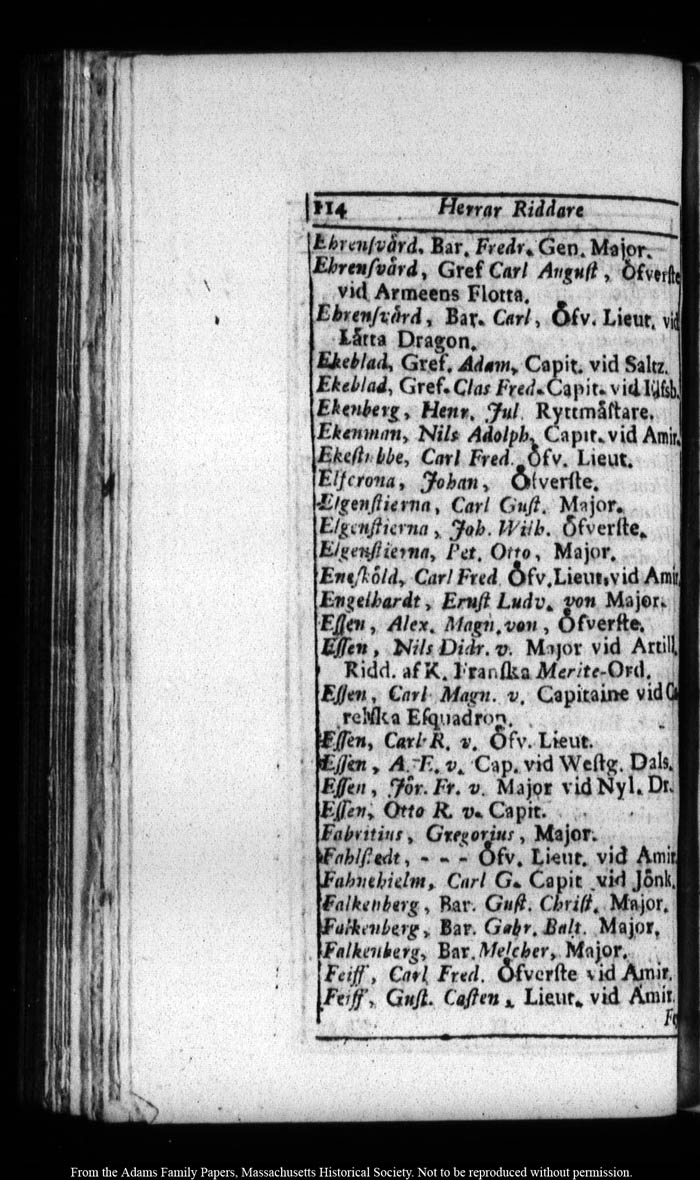 114 Herrar Riddare
Ehrensvård, Bar. Fredr. Gen. Major.
Ehrensvård, Gref Carl August, Öfverste
vid Armeens Flotta.
Ehrensvård, Bar. Carl, Öfv. Lieut. vid
Låtta Dragon.
Ekeblad, Gref. Adam, Capit. vid Saltz.
Ekeblad, Gref. Clas Fred. Capit. vid
Ekenberg, Henr. Jul. Ryttmåstare.
Ekenman, Nils Adolph, Capit. vid Amir.
Ekestubbe, Carl Fred. Öfv. Lieut.
Elfcrona, Johan, Öfverste.
Elgenstierna, Carl Gust. Major.
Elgenstierna, Joh. Wilh. Öfverste.
Elgenstierna, Pet. Otto, Major.
Eneskôld, Carl Fred. Öfv. Lieut. vid Amir
Engelhardt, Ernst Ludv. von Major.
Essen, Alex. Magn. von, Öfverste.
Essen, Nils Didr. v. Major vid Artill.
Ridd. af K. Franska Merite-Ord.
Essen, Carl Magn. v. Capitaine vid
relska Esquadron.
Essen, Carl R. v. Öfv. Lieut.
Essen, A. F. v. Cap. vid Westg. Dals.
Essen, Jör. Fr. v. Major vid Nyl. Dr.
Essen, Otto R. v. Capit.
Fabritius, Gregorius, Major.
Fahlstedt, - - - Öfv. Lieut. vid Amir
Fahnehielm, Carl G. Capit vid Jönk.
Falkenberg, Bar. Gust. Christ. Major.
Falkenberg, Bar. Gabr. Balt. Major.
Falkenberg, Bar. Melcher, Major.
Feiff, Carl Fred. Öfverste vid Amir.
Feiff, Gust. Casten, Lieut. vid Amir.
Fe
From the Adams Family Papers, Massachusetts Historical Society. Not to be reproduced without permission.